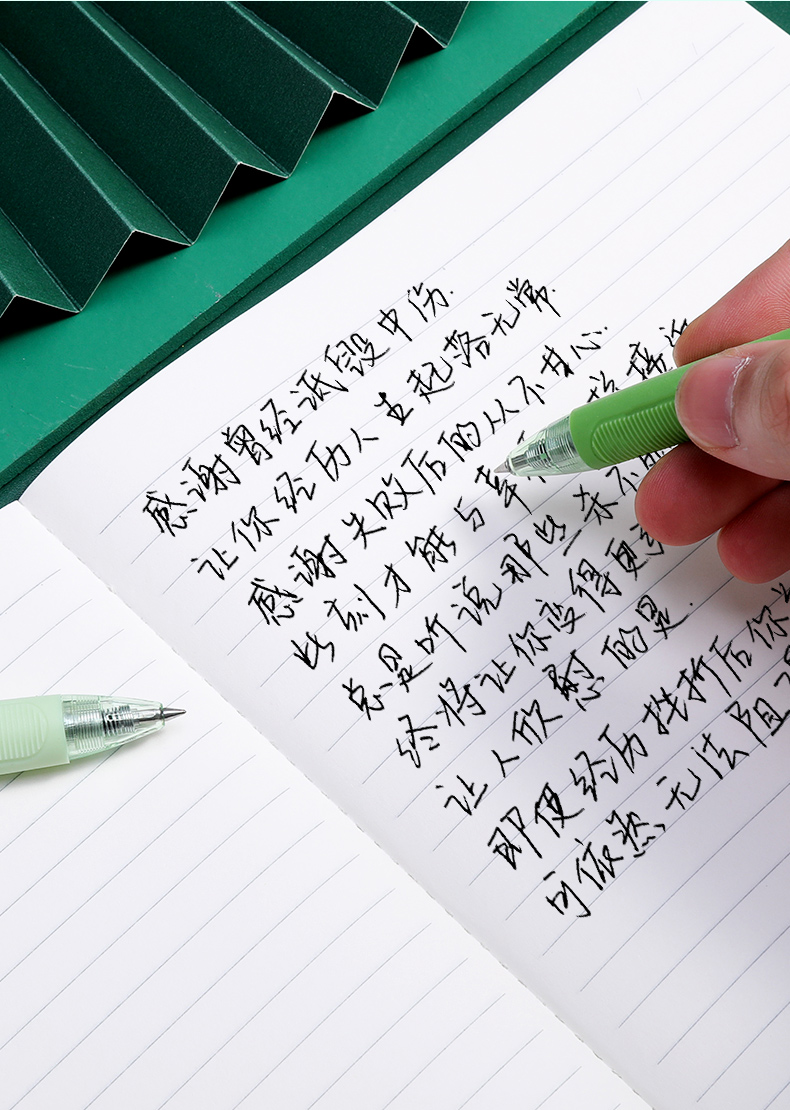 感谢曾经诋毁中伤.
让你经历人生起落无常.
感谢失败后的从不甘心.
此刻才能与幸
总是听说那些杀不
终将让你变得更
让人欣慰的是.
即使经历挫折后你
可依然无法阻